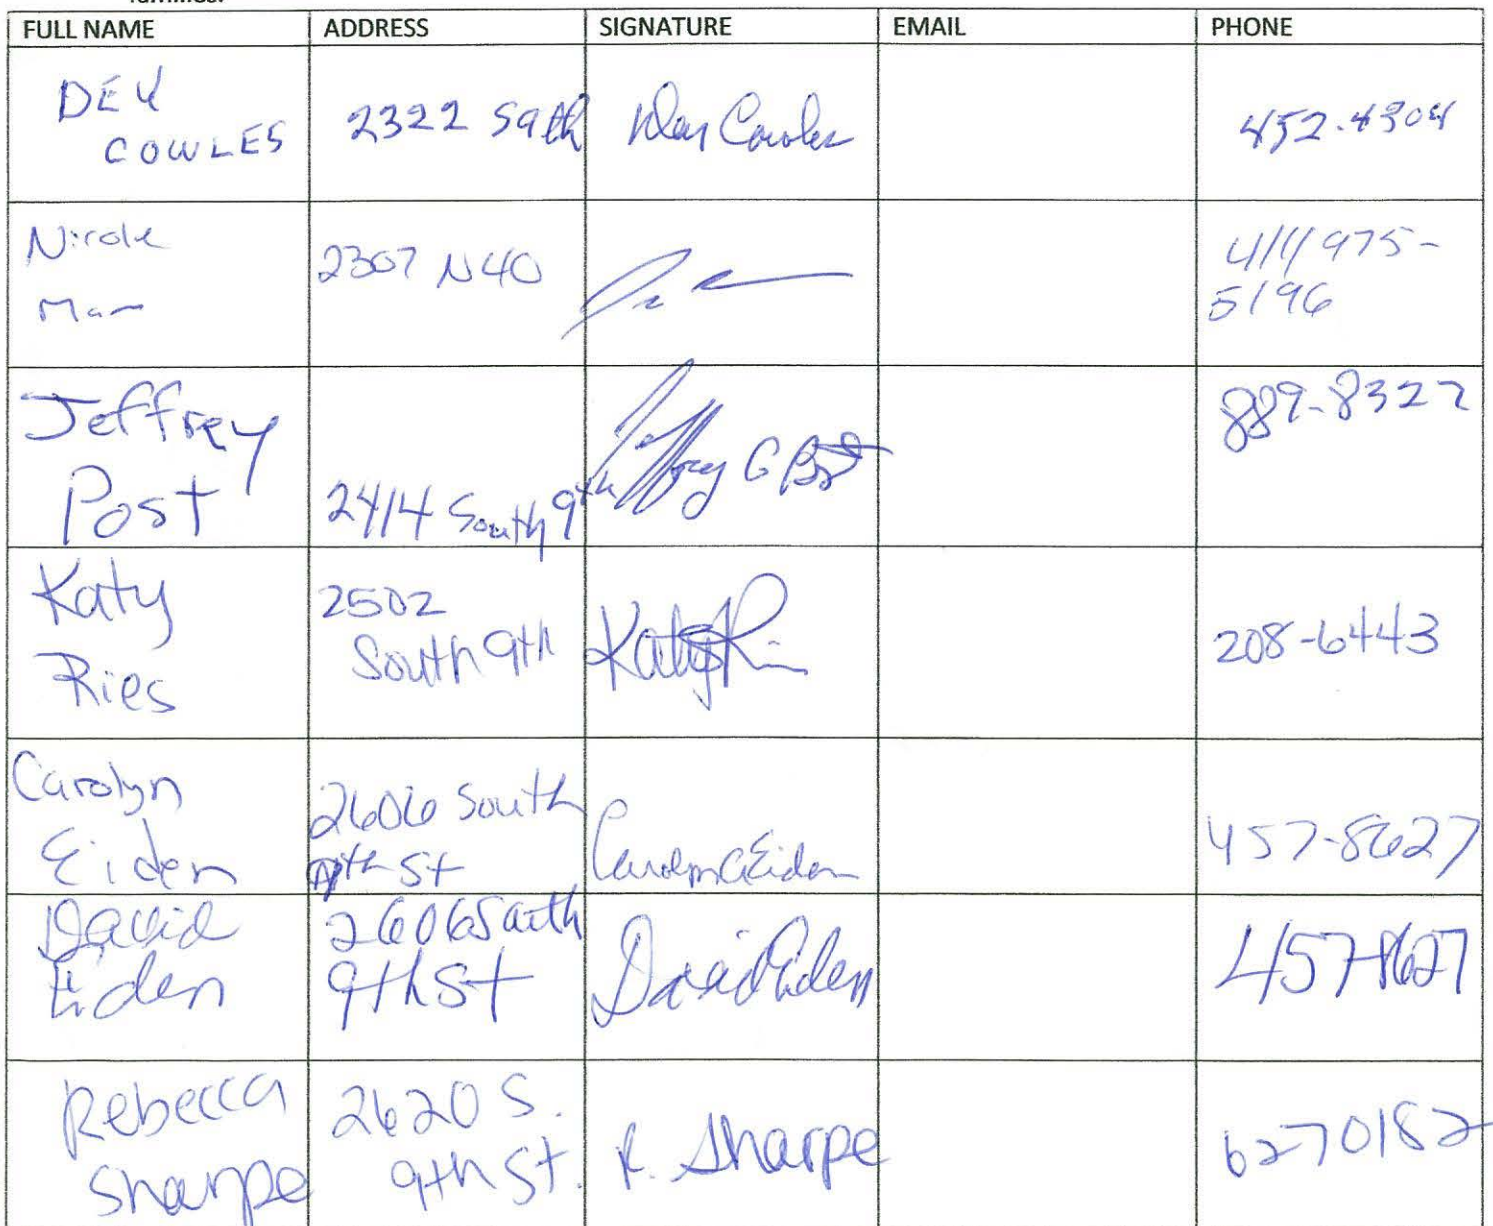 families.
FULL NAME ADDRESS SIGNATURE EMAIL PHONE
DEY
COWLES
2322 S9th
Dey Cowles
452-4304
Nicole
2307 N 40
414 975-
5196
Jeffrey
Post
2414 South 9th
Jeffrey G Post
889-8322
Katy
Ries
2502
South 9th
Katy Ries
208-6443
Carolyn
Eiden
2606 South
9th St
Carolyn A Eiden
457-8627
David
Eiden
2606 South
9th St
David Eiden
457-8627
Rebecca
Sharpe
2620 S.
9th St.
R. Sharpe
6270182